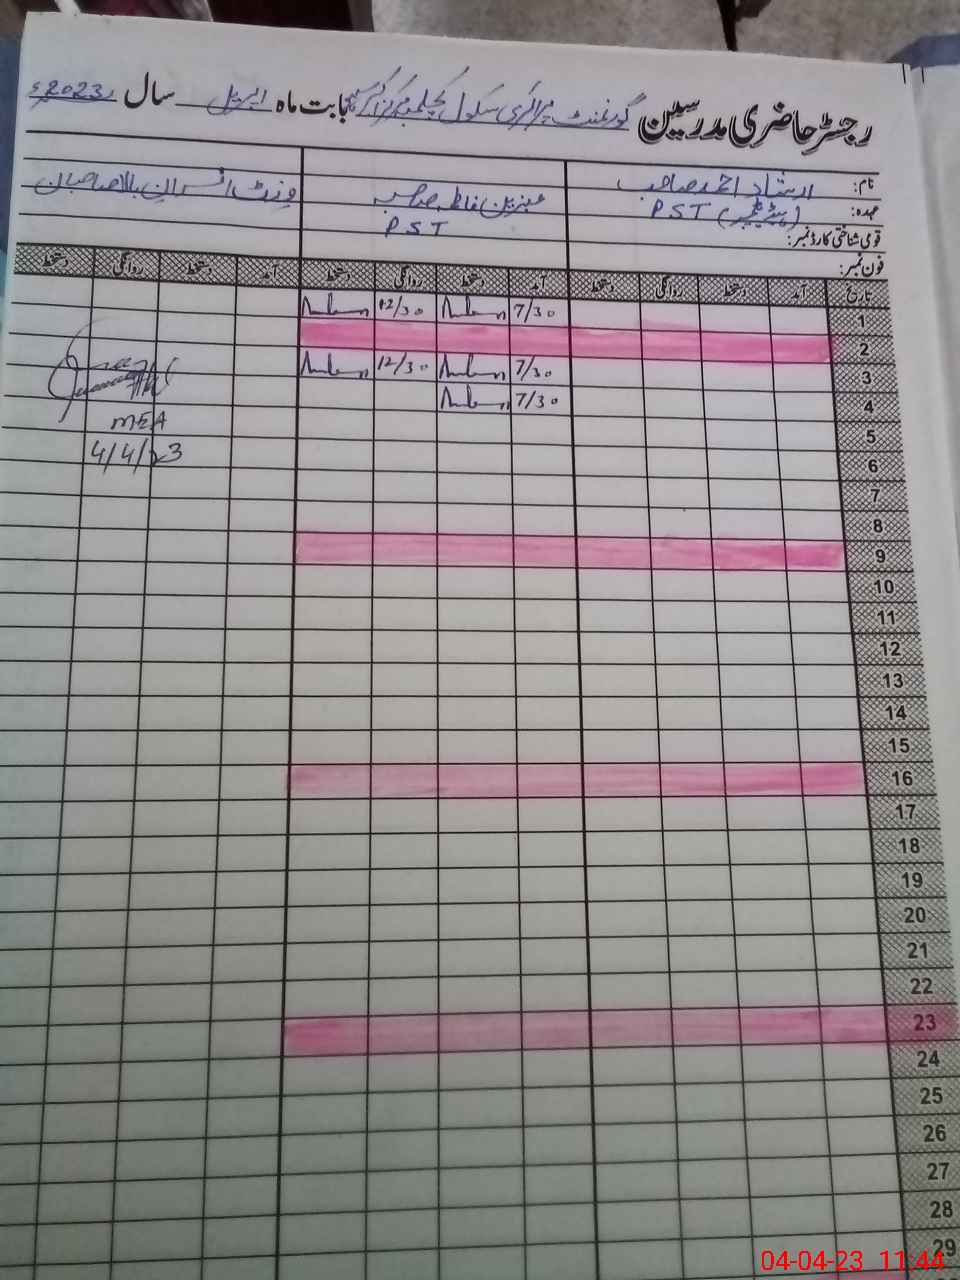 رجسٹر حاضری مدرسین گورنمنٹ پرائمری سکول بابت ماہ اپریل سال 2023ء
نام: ارشاد احمد صاحب عنبرین فاطمہ صاحبہ وزٹ افسران بالا صاحبان
عہدہ: PST (ہیڈ ٹیچر) PST
قومی شناختی کارڈ نمبر:
فون نمبر:
تاریخ آمد دستخط روانگی دستخط آمد دستخط روانگی دستخط آمد دستخط روانگی دستخط
1 7/30 12/30
2
3 7/30 12/30
4 7/30
MEA
5
4/4/23
6
7
8
9
10
11
12
13
14
15
16
17
18
19
20
21
22
23
24
25
26
27
28
29
04-04-23 11:44